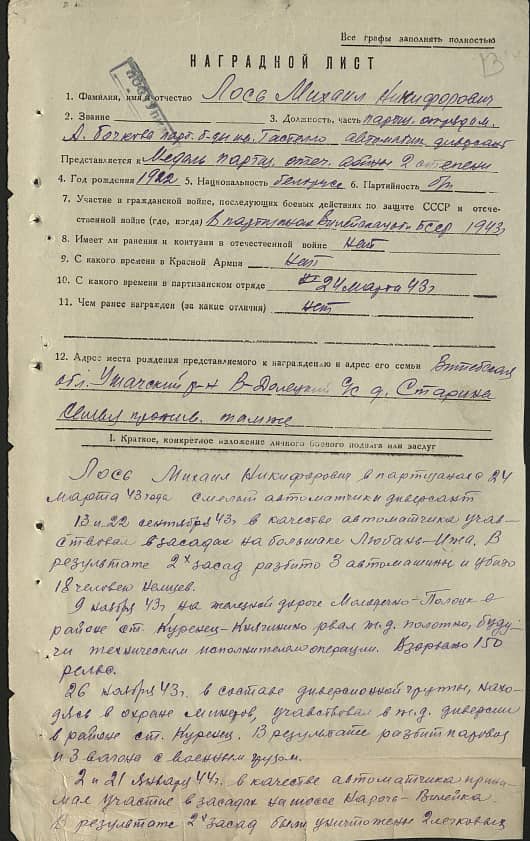 Все графы заполнять полностью
НАГРАДНОЙ ЛИСТ
1. Фамилия, имя и отчество Лось Михаил Никифорович
2. Звание 3. Должность, часть партиз. отрядом
А. Бочкова парт. б-ды им. Гастелло автоматчик диверсант
Представляется к Медаль партиз. отеч. войны 2 степени
4. Год рождения 1922 5. Национальность белорус 6. Партийность б/п
7. Участие в гражданской войне, последующих боевых действиях по защите СССР и отече-
ственной войне (где, когда) В партизанах Вилейской обл. БССР 1943г
8. Имеет ли ранения и контузии в отечественной войне нет
9. С какого времени в Красной Армии нет
10. С какого времени в партизанском отряде 24 марта 43г
11. Чем ранее награжден (за какие отличия) нет
12. Адрес места рождения представляемого к награждению и адрес его семьи Витебская
обл. Ушачский р-н В-Долецкий с/с д. Старина
Семья прожив. там же
I. Краткое, конкретное изложение личного боевого подвига или заслуг
Лось Михаил Никифорович в партизанах с 24
марта 43 года смелый автоматчик диверсант
13 и 22 сентября 43г в качестве автоматчика учав-
ствовал в засадах на большаке Любань-Ижа. В
результате 2х засад разбито 3 автомашины и убито
18 человек немцев.
9 ноября 43г на железной дороге Молодечно-Полоцк в
районе ст. Куренец-Княгинино рвал ж.д. полотно, буду-
чи техническим исполнителем операции. Взорвано 150
рельс.
26 ноября 43г. в составе диверсионной группы, нахо-
дясь в охране минеров, учавствовал в ж.д. диверсии
в районе ст. Куренец. В результате разбит паровоз
и 3 вагона с военным грузом.
2 и 21 января 44г. в качестве автоматчика прини-
мал участие в засадах на шоссе Нарочь-Вилейка
В результате 2х засад были уничтожены 2 легковых